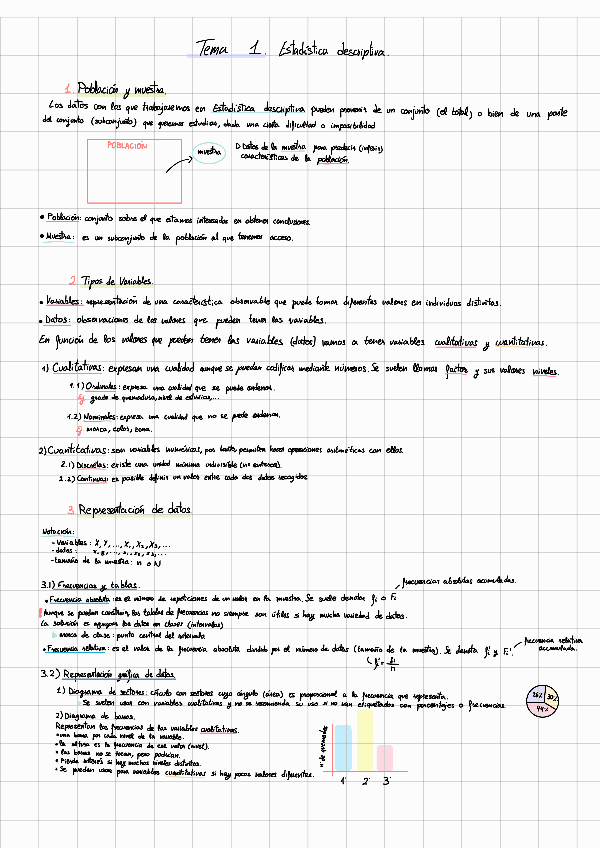 Tema 1. Estadística descriptiva.
1. Población y muestra.
Los datos con los que trabajaremos en Estadística descriptiva pueden provenir de un conjunto (el total) o bien de una parte
del conjunto (subconjunto) que queremos estudiar, dada una cierta dificultad o imposibilidad
POBLACIÓN
muestra
Datos de la muestra para predecir (inferir)
características de la población.
• Población: conjunto sobre el que estamos interesados en obtener conclusiones.
• Muestra: es un subconjunto de la población al que tenemos acceso.
2. Tipos de Variables.
• Variables: representación de una característica observable que puede tomar diferentes valores en individuos distintos.
• Datos: observaciones de los valores que pueden tener las variables.
En función de los valores que pueden tener las variables (datos) vamos a tener variables cualitativas y cuantitativas.
1) Cualitativas: expresan una cualidad aunque se puedan codificar mediante números. Se suelen llamar factor y sus valores niveles.
1.1) Ordinales: expresa una cualidad que se puede ordenar.
Ej grado de quemadura, nivel de estudios,...
1.2) Nominales: expresa una cualidad que no se puede ordenar.
Ej marca, color, zona.
2) Cuantitativas: son variables numéricas, por tanto, permiten hacer operaciones aritméticas con ellas.
2.1) Discretas: existe una unidad mínima indivisible (nº enteros).
2.2) Continuas: es posible definir un valor entre cada dos datos recogidos.
3. Representación de datos
Notación:
- Variables: X, Y, ..., X₁, X₂, X₃, ...
- datos: x, y, ..., x₁, x₂, x₃, ...
- tamaño de la muestra: n o N
3.1) Frecuencias y tablas.
frecuencias absolutas acumuladas.
• Frecuencia absoluta: es el número de repeticiones de un valor en la muestra. Se suele denotar fᵢ o Fᵢ
Aunque se puedan construir, las tablas de frecuencias no siempre son útiles si hay mucha variedad de datos.
La solución es agrupar los datos en clases (intervalos)
marca de clase: punto central del intervalo
• Frecuencia relativa: es el valor de la frecuencia absoluta dividido por el número de datos (tamaño de la muestra). Se denota fᵢ' y Fᵢ'
frecuencia relativa
acumulada.
fᵢ' = fᵢ/n
3.2) Representación gráfica de datos
1) Diagrama de sectores: círculo con sectores cuyo ángulo (área) es proporcional a la frecuencia que representa.
Se suelen usar con variables cualitativas y no se recomienda su uso si no van etiquetados con porcentajes o frecuencias.
26% 30%
44%
2) Diagrama de barras.
Representan las frecuencias de las variables cualitativas.
• una barra por cada nivel de la variable.
• la altura es la frecuencia de ese valor (nivel).
• las barras no se tocan, pero podrían.
• Pierde interés si hay muchos niveles distintos.
• Se pueden usar para variables cuantitativas si hay pocos valores diferentes.
1 2 3